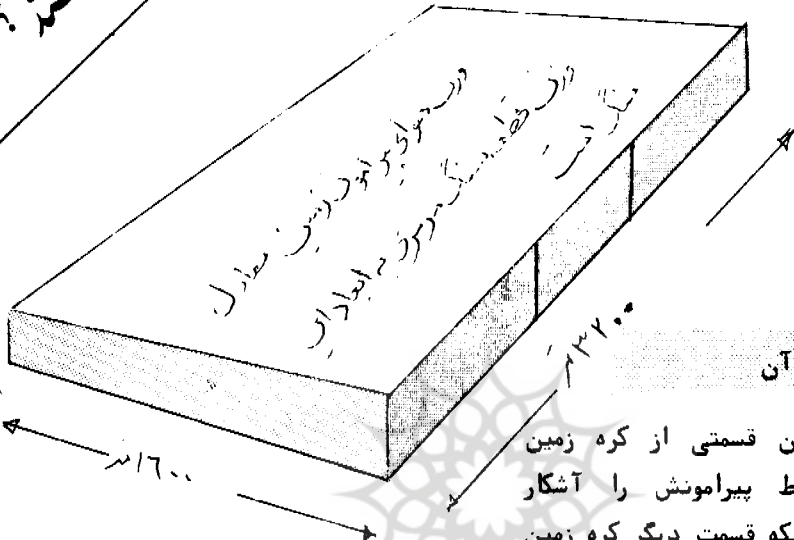 وزن هوای پیرامون زمین معادل
وزن قطعه سنگ مرمری به ابعاد این
سنگ است
۳۲۰۰ متر
۱۶۰۰ متر
آن
ن قسمتی از کره زمین
ط پیرامونش را آشکار
که قسمت دیگر کره زمین